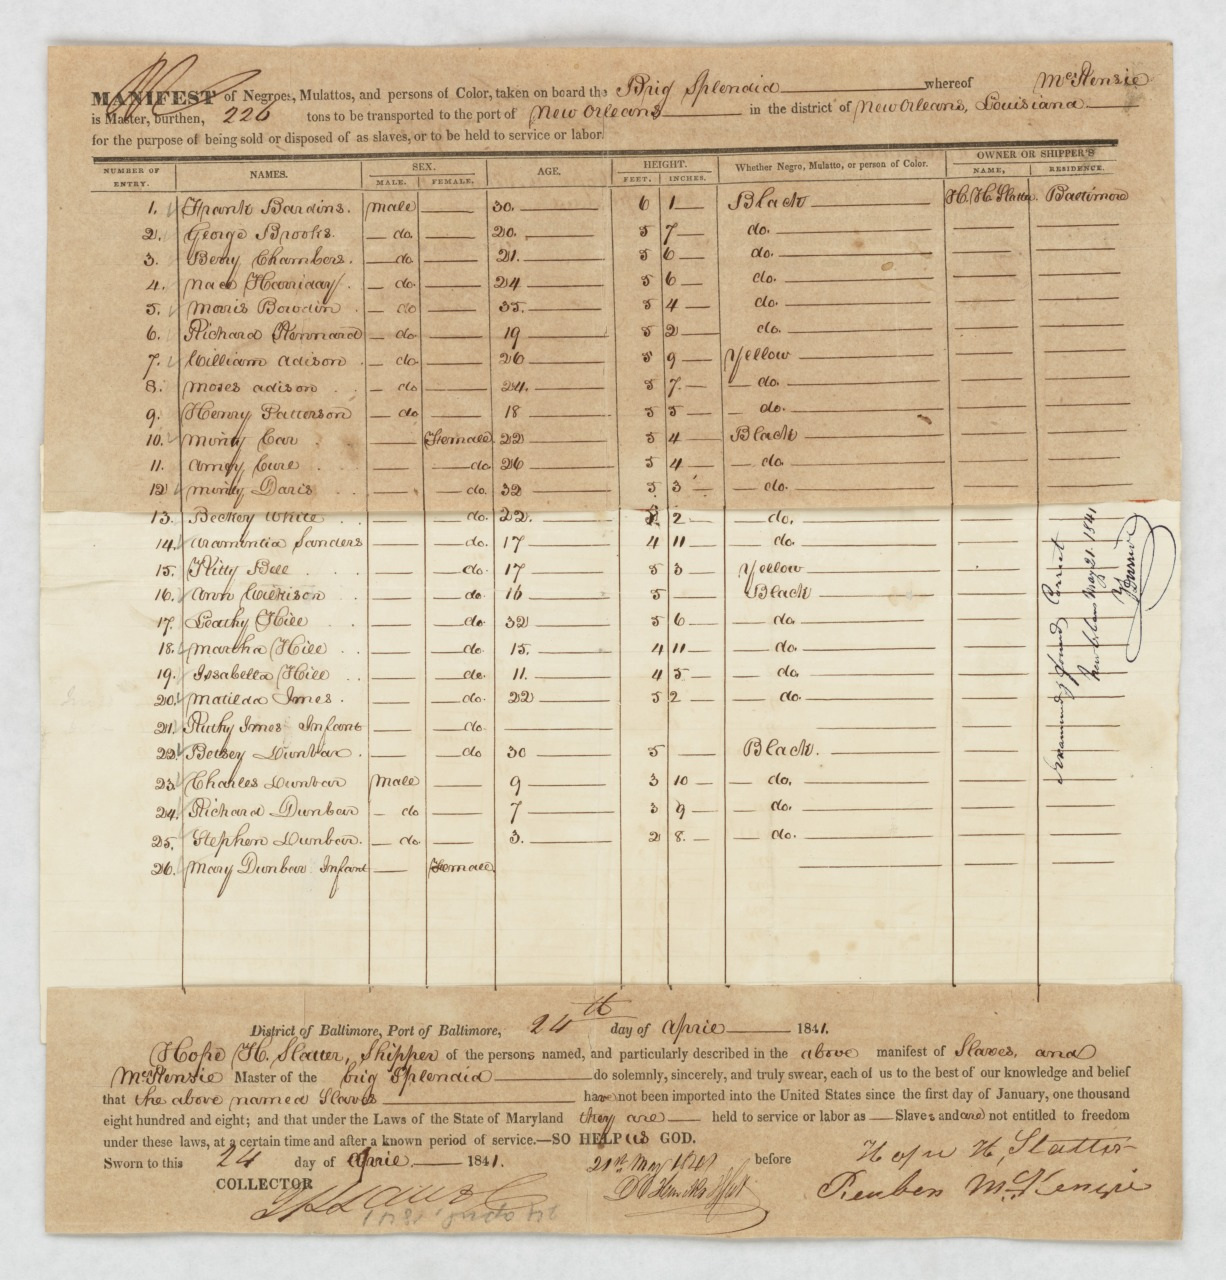 MANIFEST of Negroes, Mulattos, and persons of Color, taken on board the Brig Splendid whereof McKensie
is Master, burthen, 226 tons to be transported to the port of New Orleans in the district of New Orleans, Louisiana
for the purpose of being sold or disposed of as slaves, or to be held to service or labor.
NUMBER OF ENTRY. NAMES. SEX. MALE. FEMALE. AGE. HEIGHT. FEET. INCHES. Whether Negro, Mulatto, or person of Color. OWNER OR SHIPPER'S NAME, RESIDENCE.
1. Frank Bardins. Male 30. 6 1 Black H. H. Slatter Baltimore
2. George Brooks. do. 20. 5 7 do.
3. Beny Chambers. do. 21. 5 6 do.
4. Nace Harriday. do. 24 5 6 do.
5. Maris Bowdin do 35. 5 4 do.
6. Richard Kennard do 19 5 2 do.
7. William Adison do. 26 5 9 Yellow
8. Moses Adison do 24. 5 7. do.
9. Henry Patterson do 18 5 5 do.
10. Minty Car Female. 22 5 4 Black
11. Amey Cure do 26 5 4 do.
12 Minty Daris do. 32 5 3 do.
13. Beckey White do. 22. 2 do.
14. Araminta Sanders do. 17 4 11 do.
15. Kitty Bell do. 17 5 3 Yellow
16. Ann Wilkison do. 16 5 Black
17. Leathy Hill do. 32 5 6 do.
18. Martha Hill do. 15. 4 11 do.
19. Issabella Hill do. 11. 4 5 do.
20. Matilda Imes. do. 22 5 2 do.
21. Ruthy Imes Infant do.
22. Betsey Dunbar do 30 5 Black.
23. Charles Dunbar Male 9 3 10 do.
24. Richard Dunbar do 7 3 9 do.
25. Stephen Dunbar. do. 3. 2 8. do.
26. Mary Dunbar Infant Female
Examined & found Correct
New Orleans May 21. 1841
District of Baltimore, Port of Baltimore, 24th day of April 1841.
Hope H. Slatter, Shipper of the persons named, and particularly described in the above manifest of Slaves, and
McKensie Master of the brig Splendid do solemnly, sincerely, and truly swear, each of us to the best of our knowledge and belief
that the above named Slaves have not been imported into the United States since the first day of January, one thousand
eight hundred and eight; and that under the Laws of the State of Maryland they are held to service or labor as Slaves and are not entitled to freedom
under these laws, at a certain time and after a known period of service.—SO HELP us GOD.
Sworn to this 24 day of April 1841. 21st May 1841 before Hope H. Slatter
COLLECTOR Reuben McKenzie